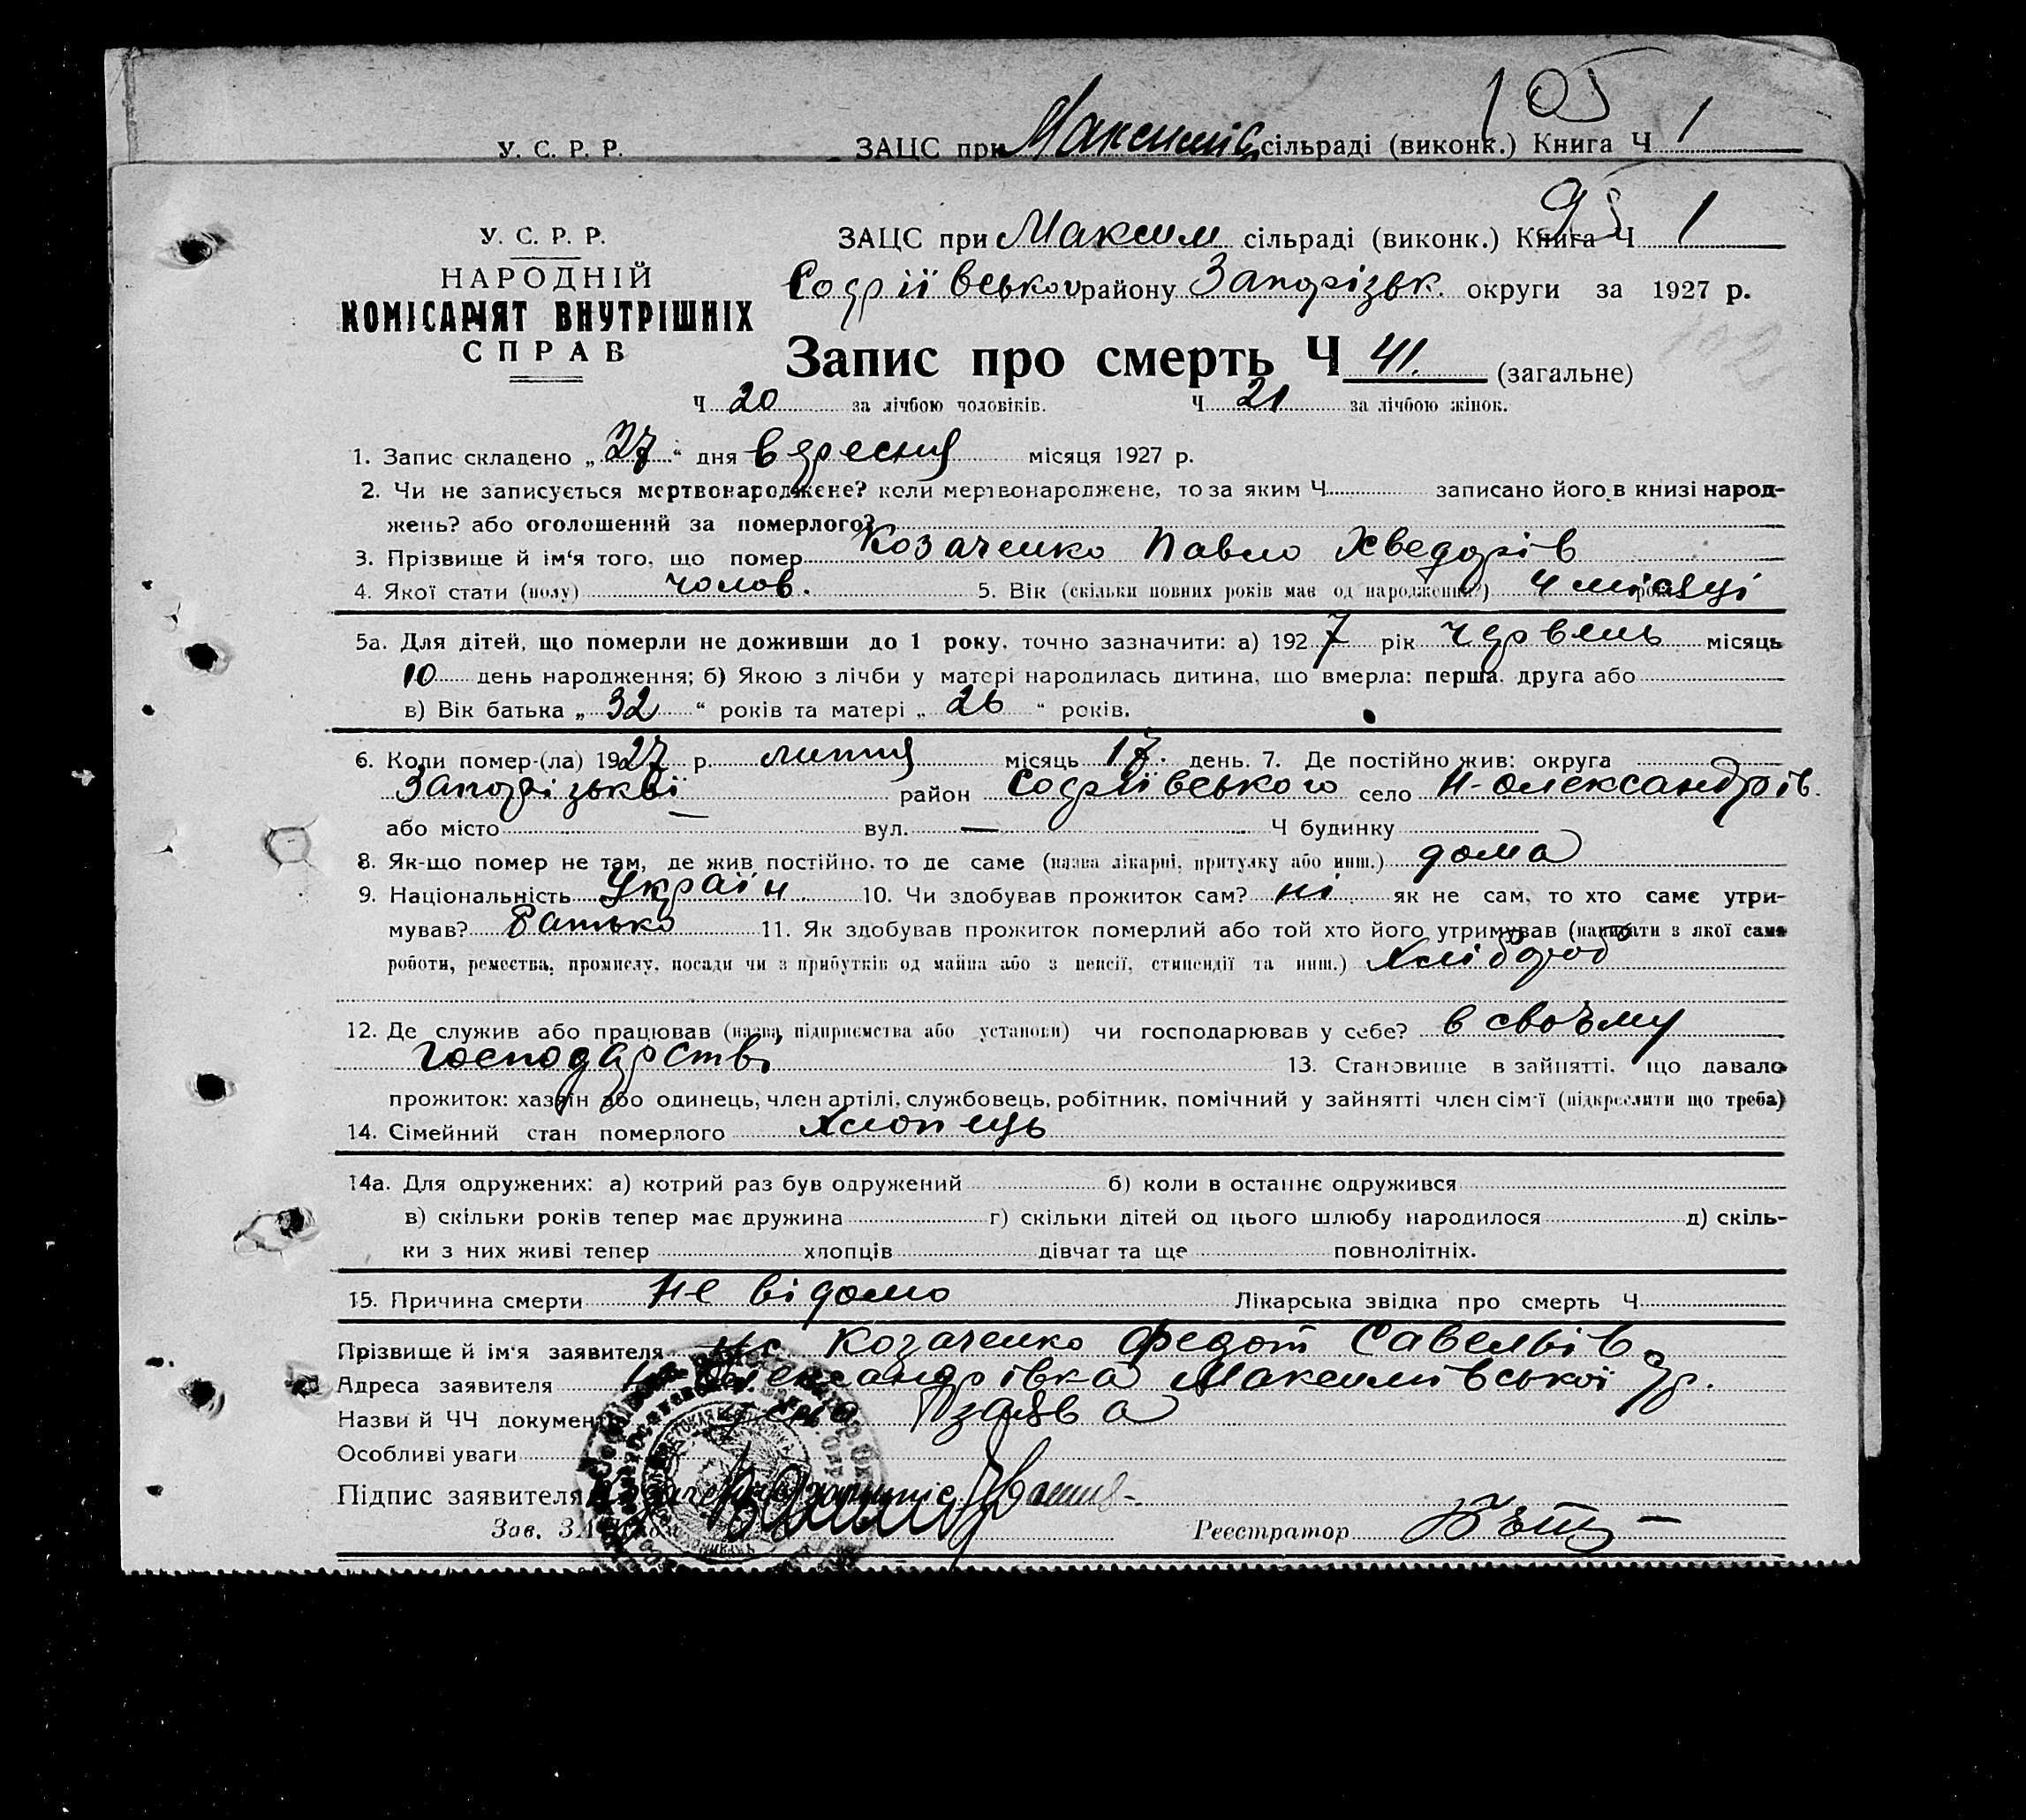 105
У. С. Р. Р. ЗАЦС при Максимів сільраді (виконк.) Книга Ч 1
95
У. С. Р. Р. ЗАЦС при Максим сільраді (виконк.) Книга Ч 1
НАРОДНІЙ Софіївського району Запорізьк. округи за 1927 р.
КОМІСАРІЯТ ВНУТРІШНІХ
СПРАВ Запис про смерть Ч 41. (загальне)
102
Ч 20 за лічбою чоловіків. Ч 21 за лічбою жінок.
1. Запис складено „27“ дня вересня місяця 1927 р.
2. Чи не записується мертвонароджене? коли мертвонароджене, то за яким Ч записано його в книзі народ-
жень? або оголошений за померлого?
3. Прізвище й ім‘я того, що помер Козаченко Павло Хведорів
4. Якої стати (полу) чолов. 5. Вік (скільки повних років має од народження?) 4 місяці
5а. Для дітей, що померли не доживши до 1 року, точно зазначити: а) 1927 рік червень місяць
10 день народження; б) Якою з лічби у матері народилась дитина, що вмерла: перша, друга або
в) Вік батька „32“ років та матері „26“ років.
6. Коли помер-(ла) 1927 р. липня місяць 17. день. 7. Де постійно жив: округа
Запорізької район Софіївського село Н-Олександрів.
або місто — вул. — Ч будинку
8. Як-що помер не там, де жив постійно, то де саме (назва лікарні, притулку або инш.) дома
9. Національність Україн. 10. Чи здобував прожиток сам? ні як не сам, то хто саме утри-
мував? Батько 11. Як здобував прожиток померлий або той хто його утримував (написати з якої саме
роботи, ремества, промислу, посади чи з прибутків од майна або з пенсії, стипендії та инш.) Хлібороб
12. Де служив або працював (назва підприємства або установи) чи господарював у себе? в своъму
господарстві 13. Становище в зайнятті, що давало
прожиток: хазяїн або одинець, член артілі, службовець, робітник, помічний у зайнятті член сім‘ї (підкреслити що треба)
14. Сімейний стан померлого Хлопець
14а. Для одружених: а) котрий раз був одружений б) коли в останнє одружився
в) скільки років тепер має дружина г) скільки дітей од цього шлюбу народилося д) скіль-
ки з них живі тепер хлопців дівчат та ще повнолітніх.
15. Причина смерти Не відомо Лікарська звідка про смерть Ч
Прізвище й ім‘я заявителя Козаченко Федот Савельів
Адреса заявителя Олександрівка Максимівської
Назви й ЧЧ документ заява
Особливі уваги
Підпис заявителя
Зав. Реєстратор